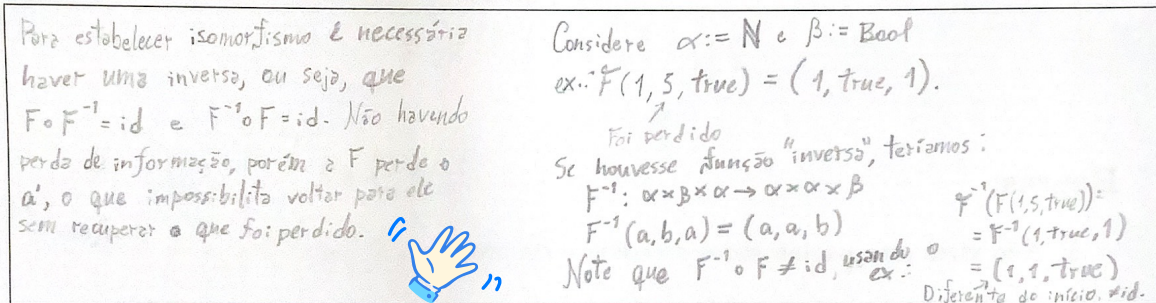 Para estabelecer isomorfismo é necessária
haver uma inversa, ou seja, que
F∘F⁻¹ = id e F⁻¹∘F = id. Não havendo
perda de informação, porém a F perde o
a', o que impossibilita voltar para ele
sem recuperar o que foi perdido.
Considere α := ℕ e β := Bool
ex.: F(1, 5, true) = (1, true, 1).
Foi perdido
Se houvesse função "inversa", teríamos:
F⁻¹: α×β×α → α×α×β
F⁻¹(a, b, a) = (a, a, b)
Note que F⁻¹∘F ≠ id, usando o ex.:
F⁻¹(F(1, 5, true)):
= F⁻¹(1, true, 1)
= (1, 1, true)
Diferente do início, ≠id.